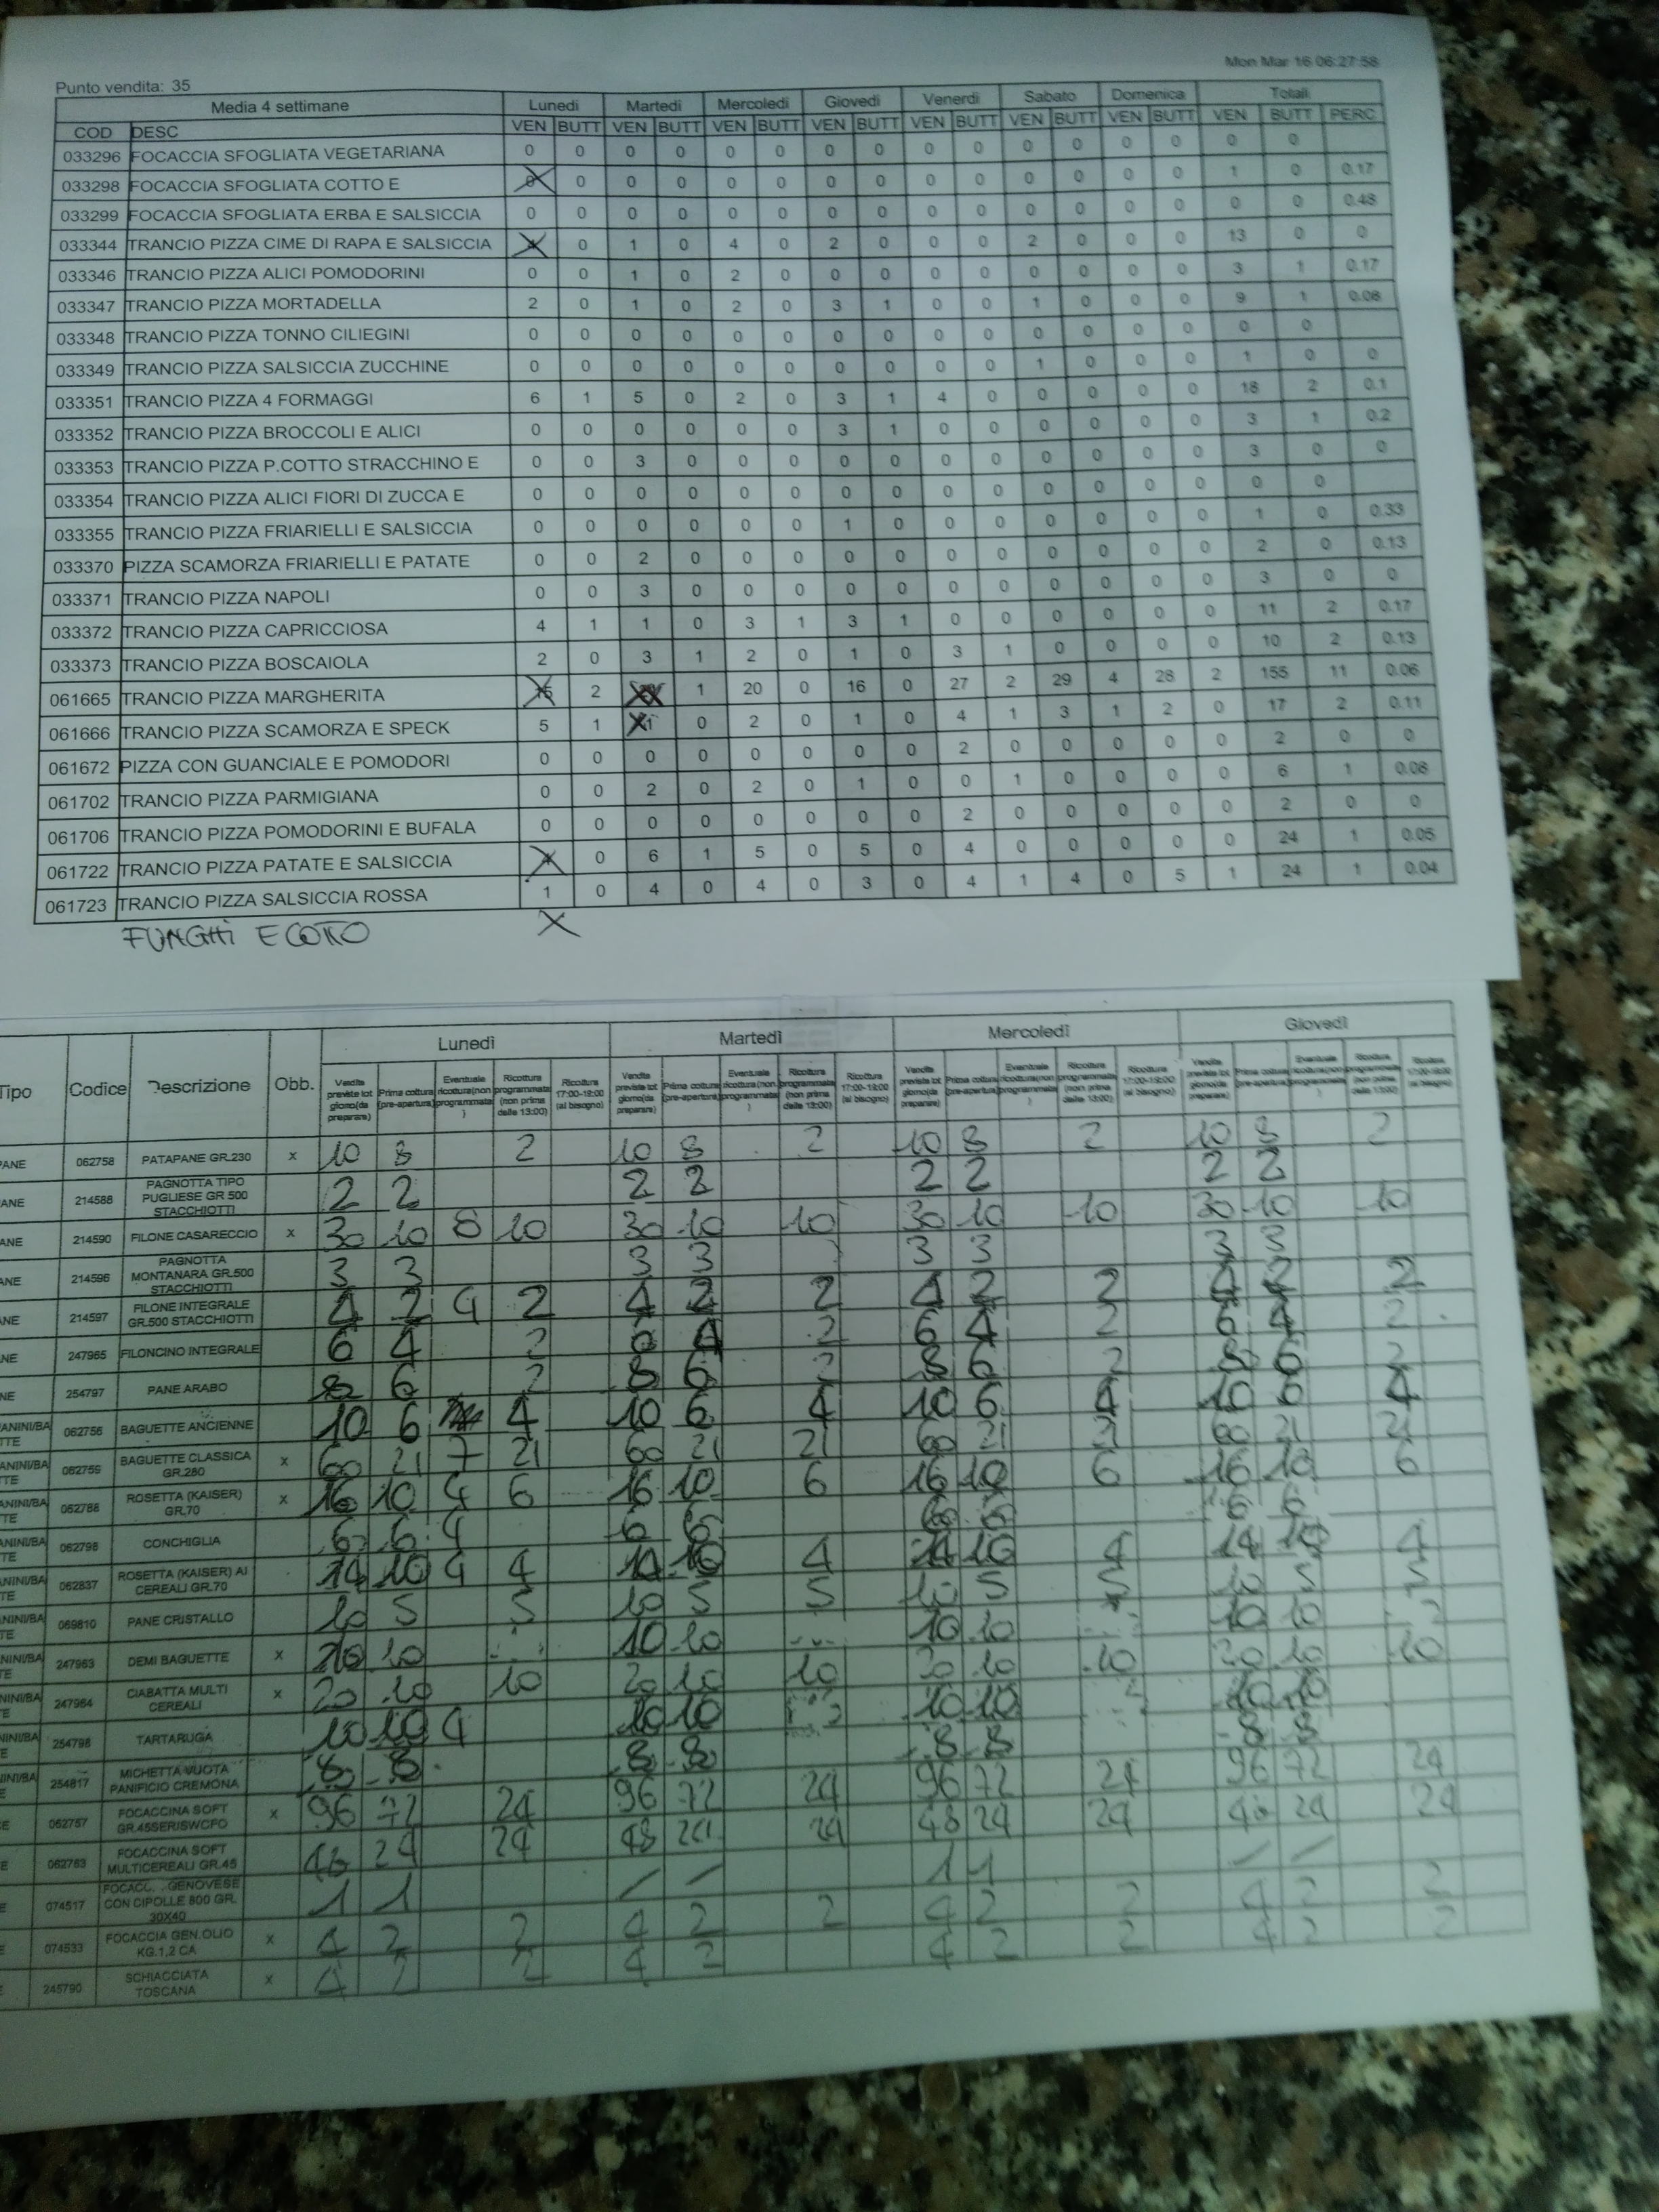 Mon Mar 16 06:27:58
Punto vendita: 35
Media 4 settimane Lunedi Martedi Mercoledi Giovedi Venerdi Sabato Domenica Totali
COD DESC VEN BUTT VEN BUTT VEN BUTT VEN BUTT VEN BUTT VEN BUTT VEN BUTT VEN BUTT PERC
033296 FOCACCIA SFOGLIATA VEGETARIANA 0 0 0 0 0 0 0 0 0 0 0 0 0 0 0 0
033298 FOCACCIA SFOGLIATA COTTO E 0 0 0 0 0 0 0 0 0 0 0 0 0 1 0 0.17
033299 FOCACCIA SFOGLIATA ERBA E SALSICCIA 0 0 0 0 0 0 0 0 0 0 0 0 0 0 0 0 0.48
033344 TRANCIO PIZZA CIME DI RAPA E SALSICCIA 0 1 0 4 0 2 0 0 0 2 0 0 0 13 0 0
033346 TRANCIO PIZZA ALICI POMODORINI 0 0 1 0 2 0 0 0 0 0 0 0 0 0 3 1 0.17
033347 TRANCIO PIZZA MORTADELLA 2 0 1 0 2 0 3 1 0 0 1 0 0 0 9 1 0.08
033348 TRANCIO PIZZA TONNO CILIEGINI 0 0 0 0 0 0 0 0 0 0 0 0 0 0 0 0
033349 TRANCIO PIZZA SALSICCIA ZUCCHINE 0 0 0 0 0 0 0 0 0 0 1 0 0 0 1 0 0
033351 TRANCIO PIZZA 4 FORMAGGI 6 1 5 0 2 0 3 1 4 0 0 0 0 0 18 2 0.1
033352 TRANCIO PIZZA BROCCOLI E ALICI 0 0 0 0 0 0 3 1 0 0 0 0 0 0 3 1 0.2
033353 TRANCIO PIZZA P.COTTO STRACCHINO E 0 0 3 0 0 0 0 0 0 0 0 0 0 0 3 0 0
033354 TRANCIO PIZZA ALICI FIORI DI ZUCCA E 0 0 0 0 0 0 0 0 0 0 0 0 0 0 0 0
033355 TRANCIO PIZZA FRIARIELLI E SALSICCIA 0 0 0 0 0 0 1 0 0 0 0 0 0 0 1 0 0.33
033370 PIZZA SCAMORZA FRIARIELLI E PATATE 0 0 2 0 0 0 0 0 0 0 0 0 0 0 2 0 0.13
033371 TRANCIO PIZZA NAPOLI 0 0 3 0 0 0 0 0 0 0 0 0 0 0 3 0 0
033372 TRANCIO PIZZA CAPRICCIOSA 4 1 1 0 3 1 3 1 0 0 0 0 0 0 11 2 0.17
033373 TRANCIO PIZZA BOSCAIOLA 2 0 3 1 2 0 1 0 3 1 0 0 0 0 10 2 0.13
061665 TRANCIO PIZZA MARGHERITA 15 2 1 20 0 16 0 27 2 29 4 28 2 155 11 0.06
061666 TRANCIO PIZZA SCAMORZA E SPECK 5 1 1 0 2 0 1 0 4 1 3 1 2 0 17 2 0.11
061672 PIZZA CON GUANCIALE E POMODORI 0 0 0 0 0 0 0 0 2 0 0 0 0 0 2 0 0
061702 TRANCIO PIZZA PARMIGIANA 0 0 2 0 2 0 1 0 0 1 0 0 0 0 6 1 0.08
061706 TRANCIO PIZZA POMODORINI E BUFALA 0 0 0 0 0 0 0 0 2 0 0 0 0 0 2 0 0
061722 TRANCIO PIZZA PATATE E SALSICCIA 4 0 6 1 5 0 5 0 4 0 0 0 0 0 24 1 0.05
061723 TRANCIO PIZZA SALSICCIA ROSSA 1 0 4 0 4 0 3 0 4 1 4 0 5 1 24 1 0.04
FUNGHI E COTTO X
Lunedì Martedì Mercoledì Giovedì
Tipo Codice Descrizione Obb.
PANE 062758 PATAPANE GR.230 x 10 8 2 10 8 2 10 8 2 10 8 2
ANE 214588 PAGNOTTA TIPO PUGLIESE GR 500 STACCHIOTTI 2 2 2 2 2 2 2 2
ANE 214590 FILONE CASARECCIO x 30 10 8 10 30 10 10 30 10 10 30 10 10
ANE 214596 PAGNOTTA MONTANARA GR.500 STACCHIOTTI 3 3 3 3 3 3 3 3
NE 214597 FILONE INTEGRALE GR.500 STACCHIOTTI 4 2 4 2 4 2 2 4 2 2 4 2 2
NE 247965 FILONCINO INTEGRALE 6 4 2 6 4 2 6 4 2 6 4 2
NE 254797 PANE ARABO 8 6 2 8 6 2 8 6 2 8 6 2
ANINI/BA TE 062756 BAGUETTE ANCIENNE 10 6 4 10 6 4 10 6 4 10 6 4
ANINI/BA TE 062759 BAGUETTE CLASSICA GR.280 x 60 21 7 21 60 21 21 60 21 21 60 21 21
ANINI/BA TE 062788 ROSETTA (KAISER) GR.70 x 16 10 4 6 16 10 6 16 10 6 16 10 6
ANINI/BA TE 062798 CONCHIGLIA 6 6 4 6 6 6 6 6
ANINI/BA TE 062837 ROSETTA (KAISER) AI CEREALI GR.70 14 10 4 4 14 10 4 14 10 4 14 10 4
NINI/BA TE 069810 PANE CRISTALLO 10 5 5 10 5 5 10 5 5 10 5 5
NINI/BA TE 247963 DEMI BAGUETTE x 10 10 10 10 10 10 10
NINI/BA TE 247964 CIABATTA MULTI CEREALI x 20 10 10 20 10 10 20 10 10 20 10 10
NINI/BA 254798 TARTARUGA 10 10 4 10 10 10 10 10 10
NINI/BA 254817 MICHETTA VUOTA PANIFICIO CREMONA 8 8 8 8 8 8 8 8
E 062757 FOCACCINA SOFT GR.45SERISWCFO x 96 72 24 96 72 24 96 72 24 96 72 24
E 062763 FOCACCINA SOFT MULTICEREALI GR.45 48 24 24 48 24 24 48 24 24 48 24 24
E 074517 GENOVESE CON CIPOLLE 800 GR. 30X40 1 1 / / 1 1 / /
E 074533 FOCACCIA GEN.OLIO KG.1,2 CA x 4 2 2 4 2 2 4 2 2 4 2 2
E 245790 SCHIACCIATA TOSCANA x 4 2 2 4 2 4 2 2 4 2 2